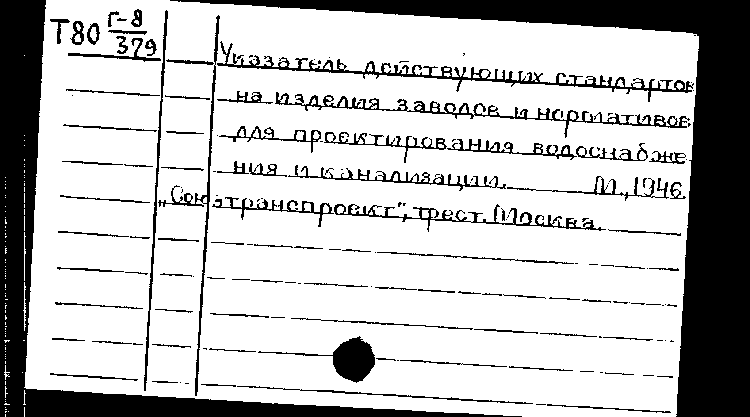 Т80 Г-8/379
Указатель действующих стандартов
на изделия заводов и нормативов
для проектирования водоснабже
ния и канализации. М., 1946.
„Союзтранспроект", трест. Москва.